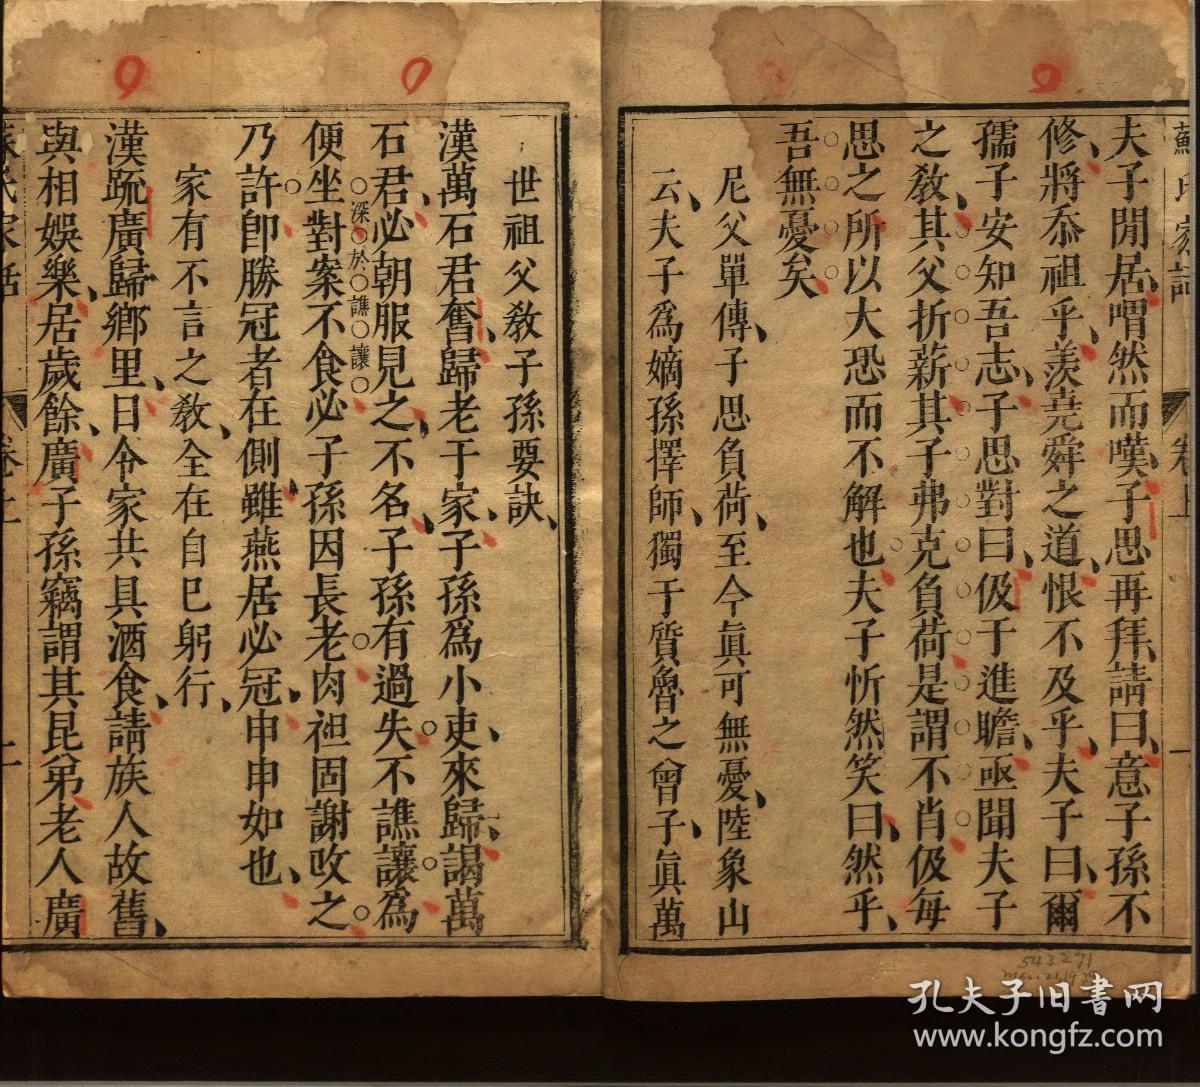 夫子閒居喟然而嘆子思再拜請曰意子孫不
修將忝祖乎羨堯舜之道恨不及乎夫子曰爾
孺子安知吾志子思對曰伋于進瞻亟聞夫子
之敎其父折薪其子弗克負荷是謂不肖伋每
思之所以大恐而不解也夫子忻然笑曰然乎
吾無憂矣
尼父單傳子思負荷至今眞可無憂陸象山
云夫子爲嫡孫擇師獨于質魯之曾子眞萬
世祖父敎子孫要訣
漢萬石君奮歸老于家子孫爲小吏來歸謁萬
石君必朝服見之不名子孫有過失不譙讓爲
深於譙讓
便坐對案不食必子孫因長老肉袒固謝改之
乃許卽勝冠者在側雖燕居必冠申申如也
家有不言之敎全在自巳躬行
漢疏廣歸鄉里日令家共具酒食請族人故舊
與相娛樂居歲餘廣子孫竊謂其昆弟老人廣
卷上
孔夫子旧書网
www.kongfz.com